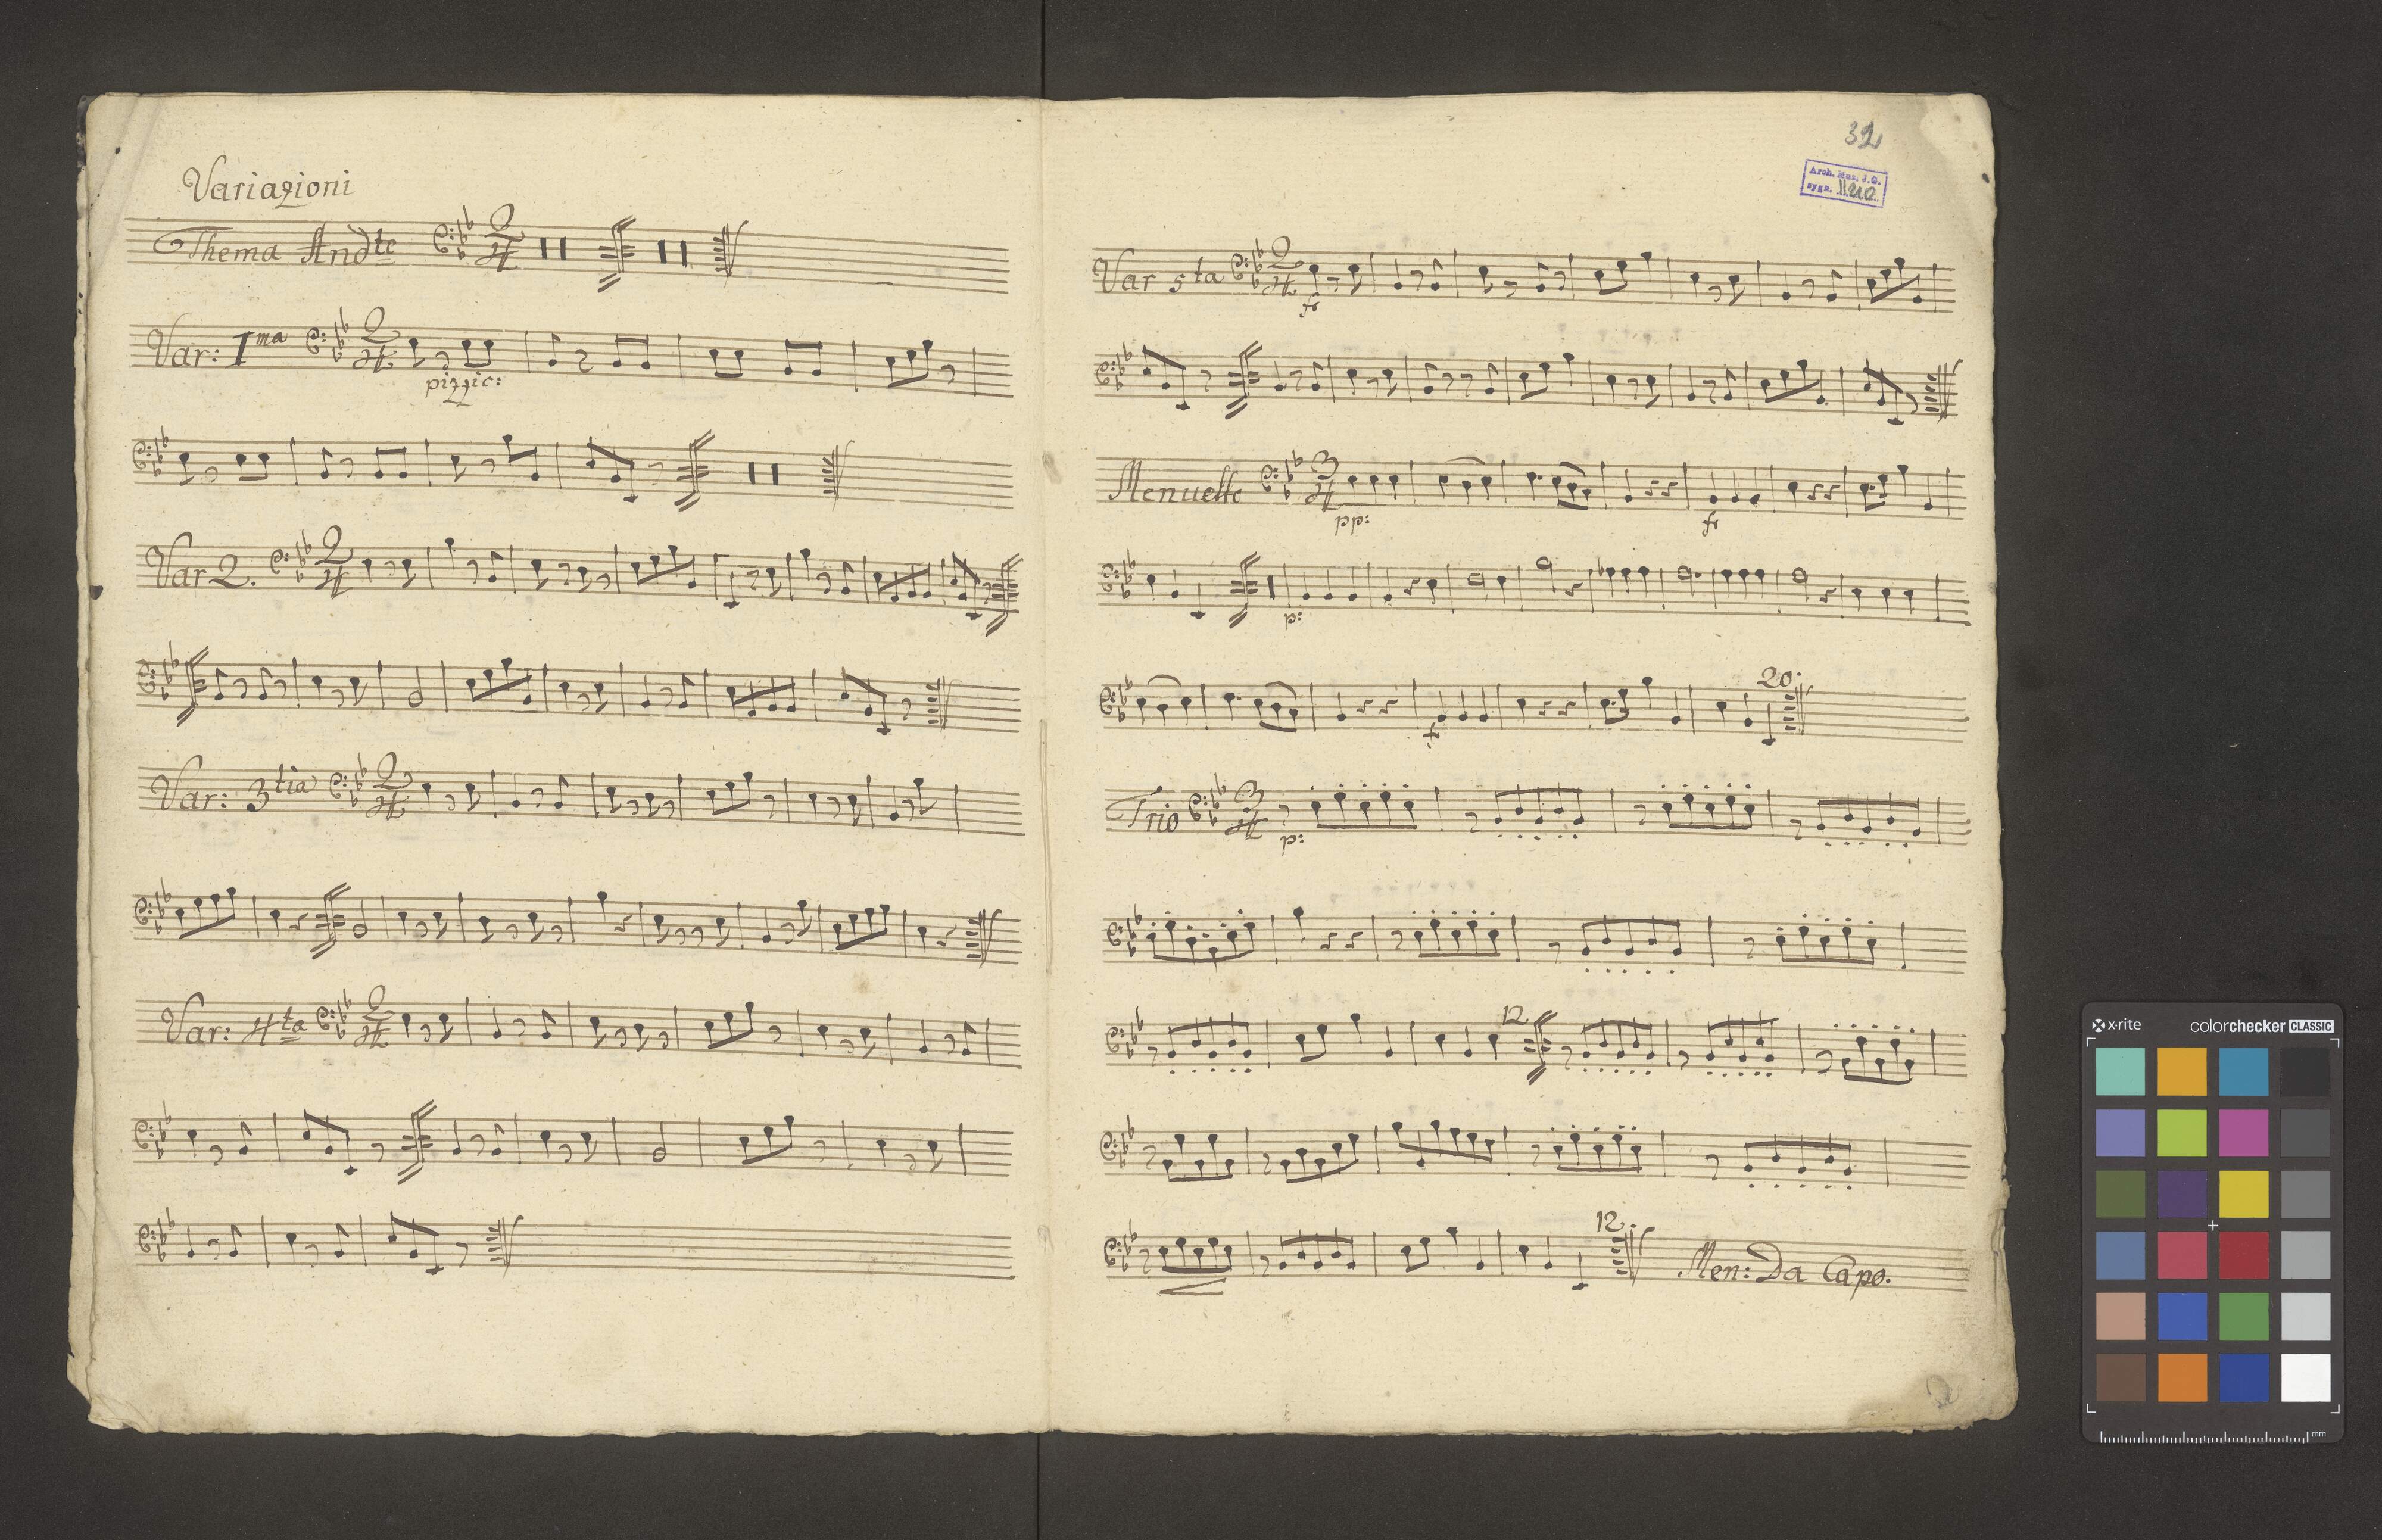 Variazioni
Thema And^te 2/4
Var: I^ma 2/4
pizzic:
Var 2. 2/4
Var: 3^tia 2/4
Var: 4^ta 2/4
32
Arch. Mus. J. G.
sygn.
Var 5^ta 2/4
f
Menuetto 3/4
pp: f
p:
20.
f
Trio 3/4
p:
12
12.
Men: Da Capo.
x·rite colorchecker CLASSIC
mm